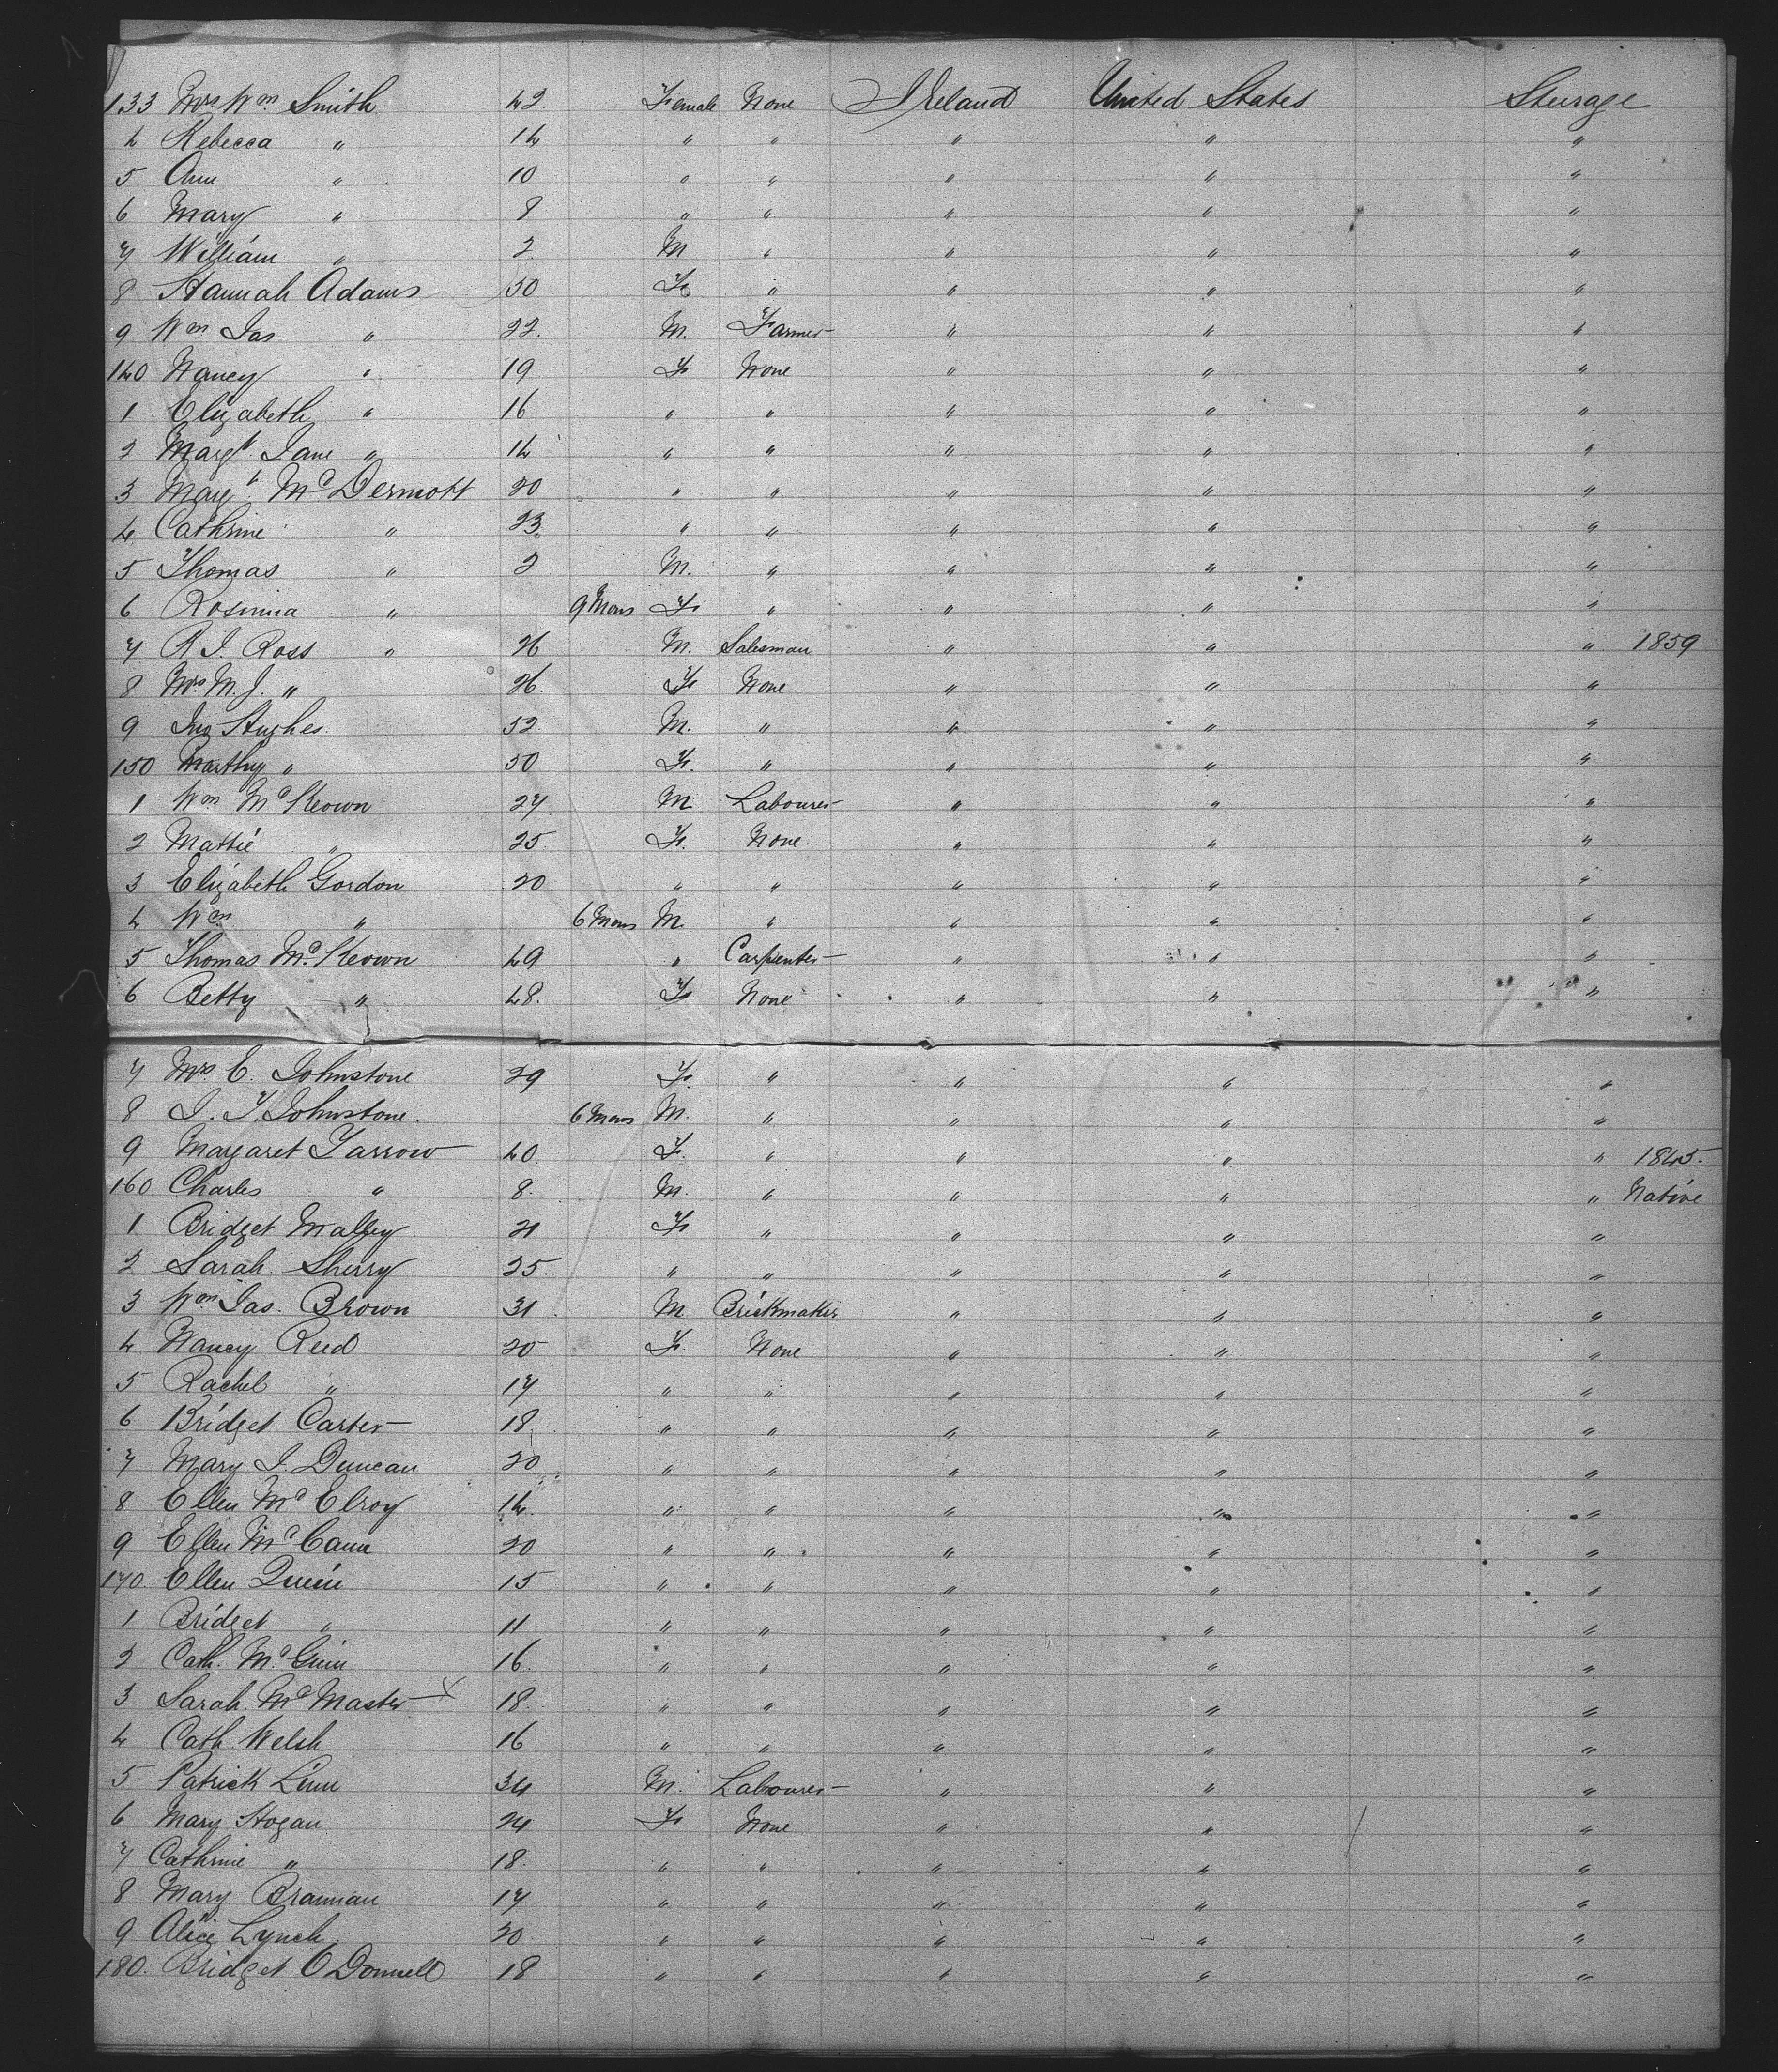 133 Mrs Wm Smith 42 Female None Ireland United States Steerage
4 Rebecca " 14 " " " " "
5 Ann " 10 " " " " "
6 Mary " 8 " " " " "
7 William " 2 M " " " "
8 Hannah Adams 50 F " " " "
9 Wm Jas " 22. M. Farmer " " "
140 Nancy " 19 F None " " "
1 Elizabeth " 16 " " " " "
2 Margt. Jane " 14 " " " " "
3 Margt. McDermott 20 " " " " "
4 Cathrine " 23 " " " " "
5 Thomas " 2 M. " " " "
6 Rosinna " 9 Mons F " " " "
7 R. J. Ross " 26 M. Salesman " " " 1859
8 Mrs M. J. " 26. F None " " "
9 Jno Hughes. 52. M. " " " "
150 Marthy " 50 F. " " " "
1 Wm McKeown 27 M Labourer " " "
2 Mattie " 25. F. None. " " "
3 Elizabeth Gordon 20 " " " " "
4 Wm " 6 Mons M " " " "
5 Thomas McKeown 49 " Carpenter " " "
6 Betty " 48. F None " " "
7 Mrs E. Johnstone 29 F. " " " "
8 J. T. Johnstone. 6 Mons M. " " " "
9 Margaret Yarrow 40 F. " " " " 1845.
160 Charles " 8. M. " " " " Native
1 Bridget Malley 21 F " " " "
2 Sarah Sherry 25. " " " " "
3 Wm Jas. Brown 31 M Brickmaker " " "
4 Nancy Reed 20 F. None " " "
5 Rachel " 17 " " " " "
6 Bridget Carter 18 " " " " "
7 Mary J. Duncan 20 " " " " "
8 Ellen McElroy 14. " " " " "
9 Ellen McCann 20 " " " " "
170. Ellen Quin 15 " " " " "
1 Bridget " 11 " " " " "
2 Cath. McGinn 16. " " " " "
3 Sarah McMaster X 18. " " " " "
4 Cath Welsh 16 " " " " "
5 Patrick Linn 34 M. Labourer " " "
6 Mary Hogan 24 F None " " "
7 Cathrine " 18. " " " " "
8 Mary Brannan 17 " " " " "
9 Alice Lynch 20 " " " " "
180. Bridget O Donnell 18 " " " " "